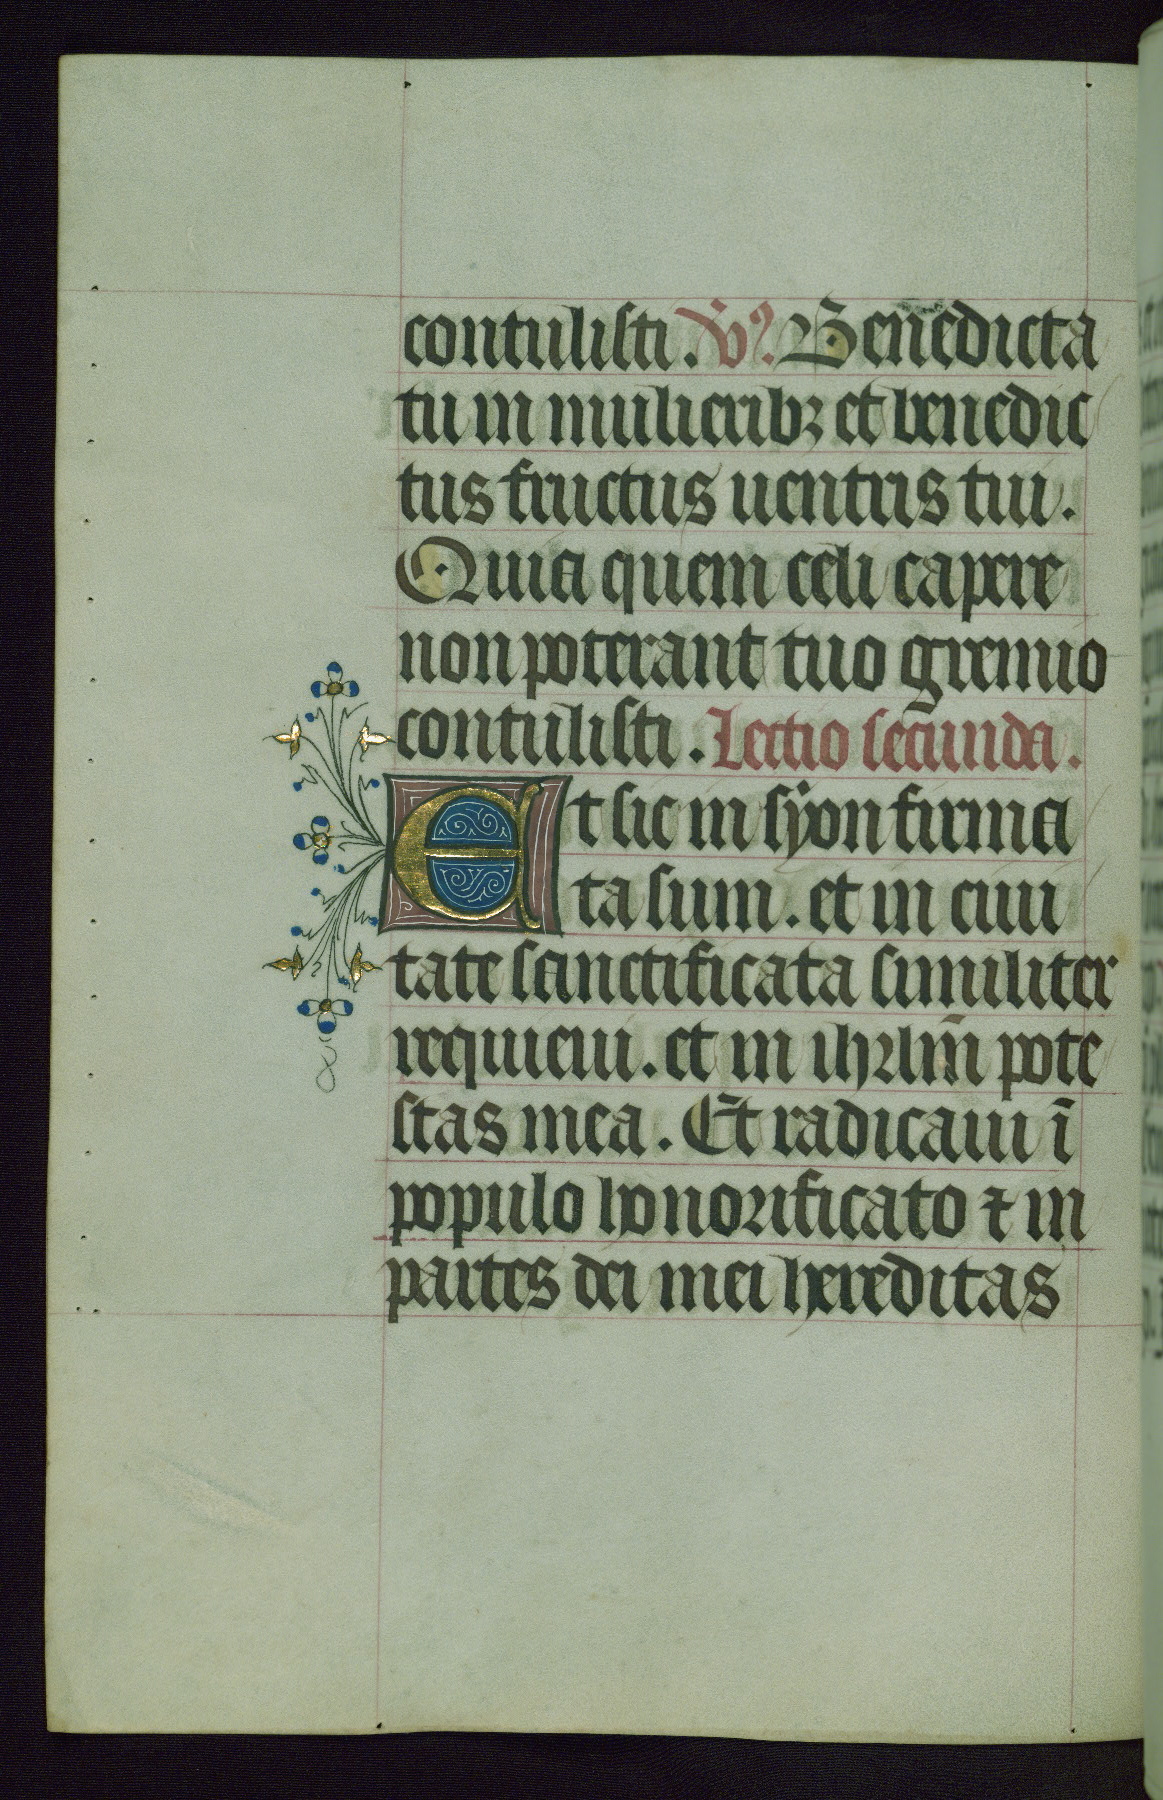 contulisti. V̷. Benedicta
tu in mulieribꝫ et benedic
tus fructus uentris tui.
Quia quem celi capere
non poterant tuo gremio
contulisti. Lectio secunda.
Et sic in syon firma
ta sum. et in ciui
tate sanctificata similiter
requieui. et in ihrlm̄ pote
stas mea. Et radicaui ī
populo honorificato ⁊ in
partes dei mei hereditas